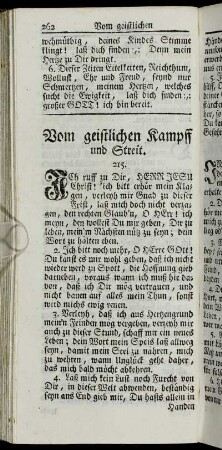 262 Vom geistlichen
wehmüthig, deines Kindes Stimme
klingt! laß dich finden :,: Denn mein
Hertze zu Dir dringt.
6. Dieser Zeiten Eitelkeiten, Reichthum,
Wollust, Ehr und Freud, seynd nur
Schmertzen, meinem Hertzen, welches
sucht die Ewigkeit, laß dich finden :,:
grosser GOTT! ich bin bereit.
Vom geistlichen Kampff
und Streit.
215.
Ich ruff zu Dir, HERR JESU
Christ! ich bitt erhör mein Kla-
gen, verleyh mir Gnad zu dieser
Frist, laß mich doch nicht verza-
gen, den rechten Glaub'n, O HErr! ich
meyn, den wollest Du mir geben, Dir zu
leben, mein'm Nächsten nütz zu seyn; dein
Wort zu halten eben.
2. Ich bitt noch mehr, O HErre GOtt!
Du kanst es mir wohl geben, daß ich nicht
wieder werd zu Spott, die Hoffnung gieb
darneben, voraus wann ich muß hie das
von, daß ich Dir mög vertrauen, und
nicht bauen auf alles mein Thun, sonst
wird michs ewig reuen.
3. Verleyh, daß ich aus Hertzengrund
mein'n Feinden mög vergeben, verzeyh mir
auch zu dieser Stund, schaff mir ein neues
Leben; dein Wort mein Speis laß allweg
seyn, damit mein Seel zu nähren, mich
zu wehren, wann Unglück geht daher,
das mich bald möcht abkehren.
4. Laß mich kein Lust noch Furcht von
Dir, in dieser Welt abwenden, beständig
seyn ans End gieb mir, Du hasts allein in
Handen